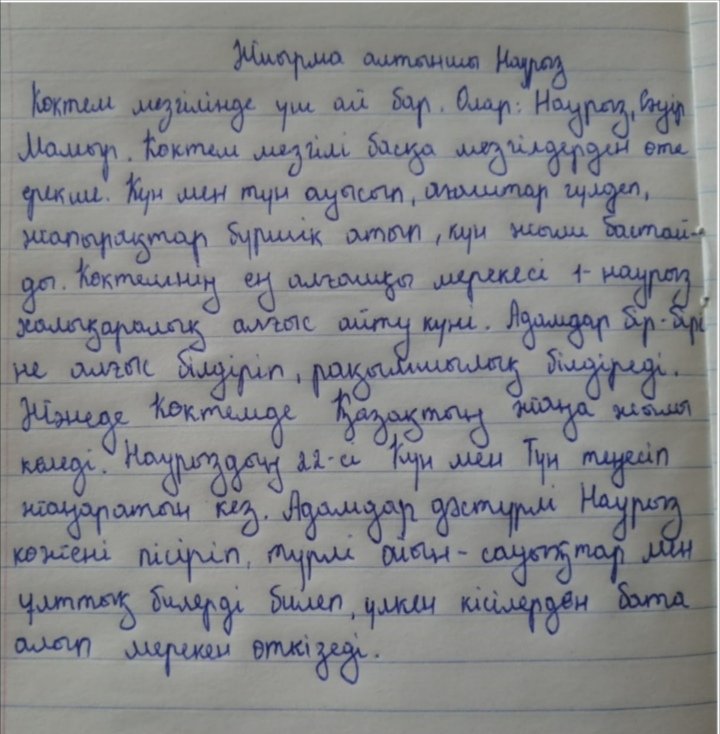 Жиырма алтыншы Наурыз
Көктем мезгілінде үш ай бар. Олар: Наурыз, Сәуір
Мамыр. Көктем мезгілі басқа мезгілдерден өте
ерекше. Күн мен түн ауысып, ағаштар гүлдеп,
жапырақтар бүршік атып, күн жыли бастай-
ды. Көктемнің ең алғашқы мерекесі 1-наурыз
халықаралық алғыс айту күні. Адамдар бір-бірі
не алғыс білдіріп, рақымшылық білдіреді.
Жәнеде Көктемде Қазақтың жаңа жылы
келеді. Наурыздың 22-сі Күн мен Түн теңесіп
жаңаратын кез. Адамдар дәстүрлі Наурыз
көжені пісіріп, түрлі ойын-сауықтар мен
ұлттық билерді билеп, үлкен кісілерден бата
алып мерекен өткізеді.